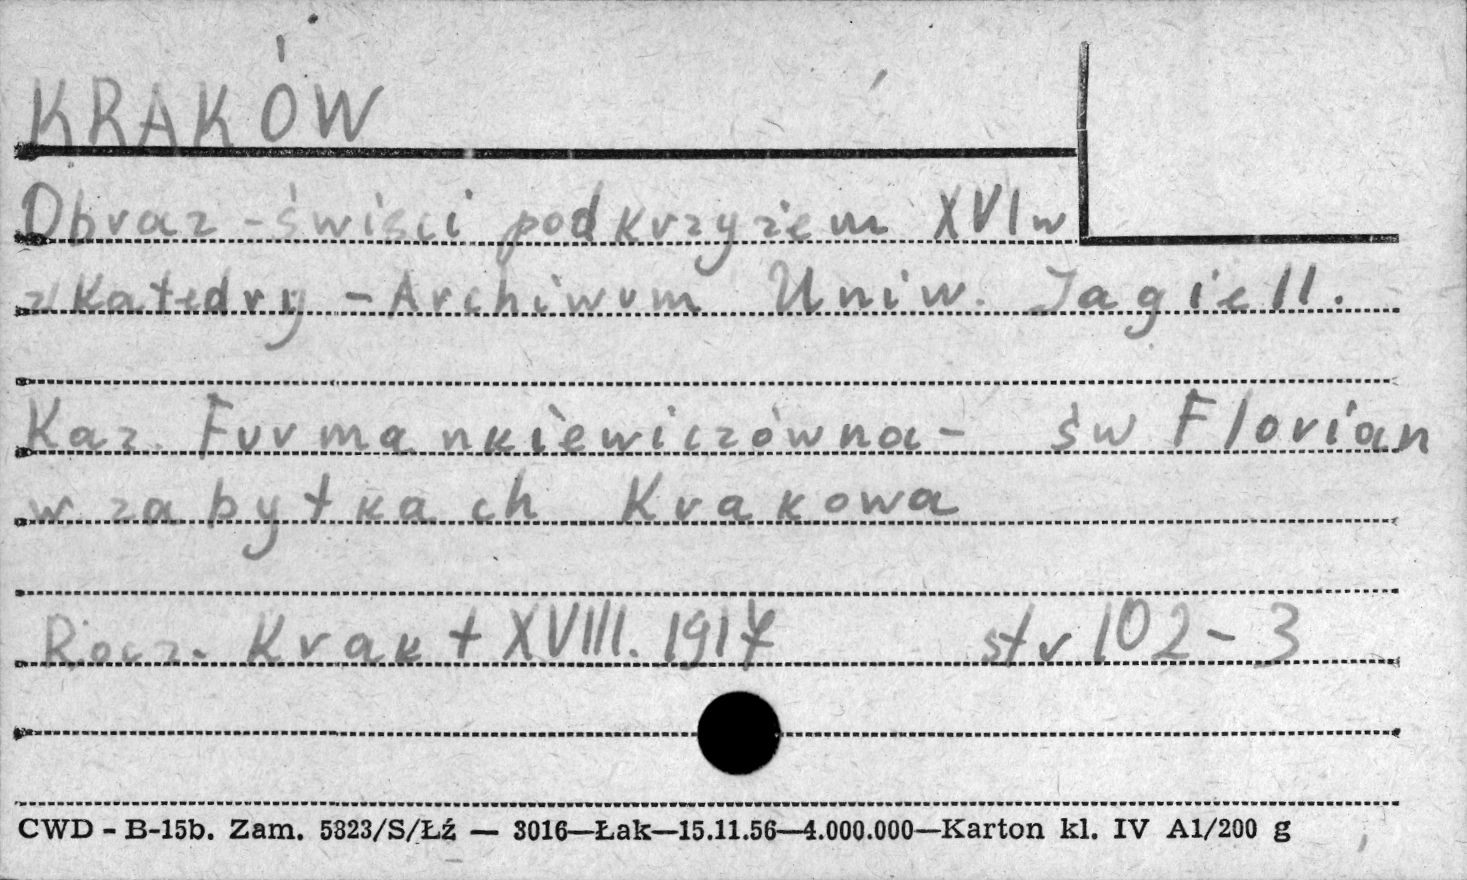 KRAKÓW
Obraz - świsci pod krzyżem XVI w
z Katedry - Archiwum Uniw. Jagiell.
Kaz. Furmankiewiczówna - św Florian
w zabytkach Krakowa
Rocz. Krak t XVIII. 1917 str 102-3
CWD - B-15b. Zam. 5323/S/Łź — 3016—Łak—15.11.56—4.000.000—Karton kl. IV A1/200 g